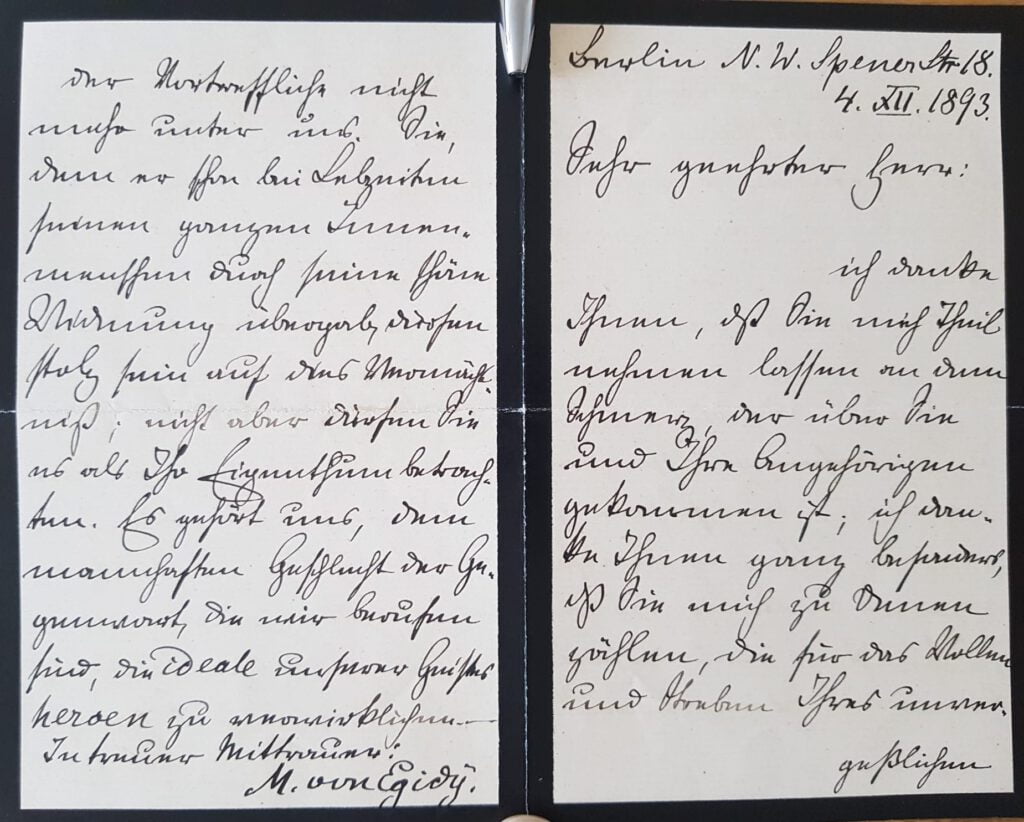 Berlin N. W. Spener Str 18.
4. XII. 1893.
Sehr geehrter Herr:
ich danke
Ihnen, dß Sie mich Theil
nehmen lassen an dem
Schmerz, der über Sie
und Ihre Angehörigen
gekommen ist; ich dan-
ke Ihnen ganz besonders,
dß Sie mich zu Denen
zählen, die für das Wollen
und Streben Ihres unver-
geßlichen
der Vortreffliche nicht
mehr unter uns. Sie,
dem er schon bei Lebzeiten
seinen ganzen Innen-
menschen durch seine schöne
Widmung übergab, dürfen
stolz sein auf dies Vermächt-
niß; nicht aber dürfen Sie
es als Ihr Eigenthum betrach-
ten. Es gehört uns, dem
mannhaften Geschlecht der Ge-
genwart, die wir berufen
sind, die ideale unserer Geistes
heroen zu verwirklichen.
In treuer Mittrauer:
M. von Egidy.